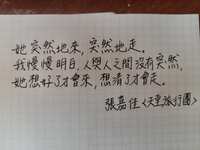 她突然地來，突然地走。
我慢慢明白，人與人之間沒有突然，
她想好了才會來，想清了才會走。
張嘉佳《天堂旅行團》